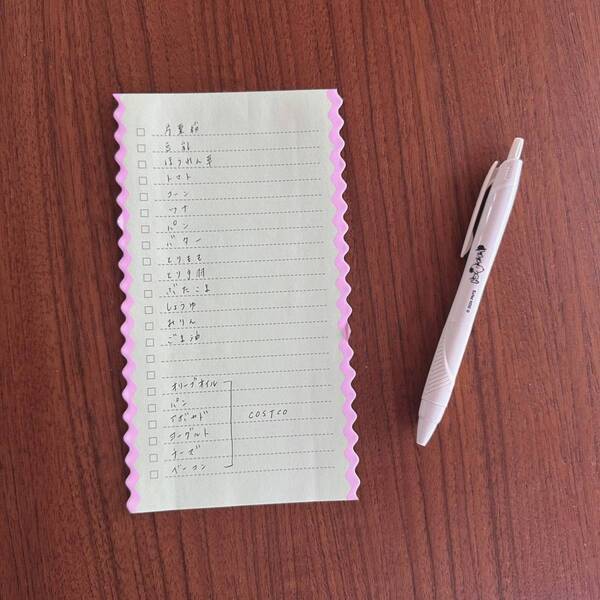 片栗粉
豆腐
ほうれん草
トマト
コーン
ツナ
パン
バター
とりもも
とり手羽
ぶたこま
しょうゆ
みりん
ごま油
オリーブオイル
パン
アボカド
COSTCO
ヨーグルト
チーズ
ベーコン